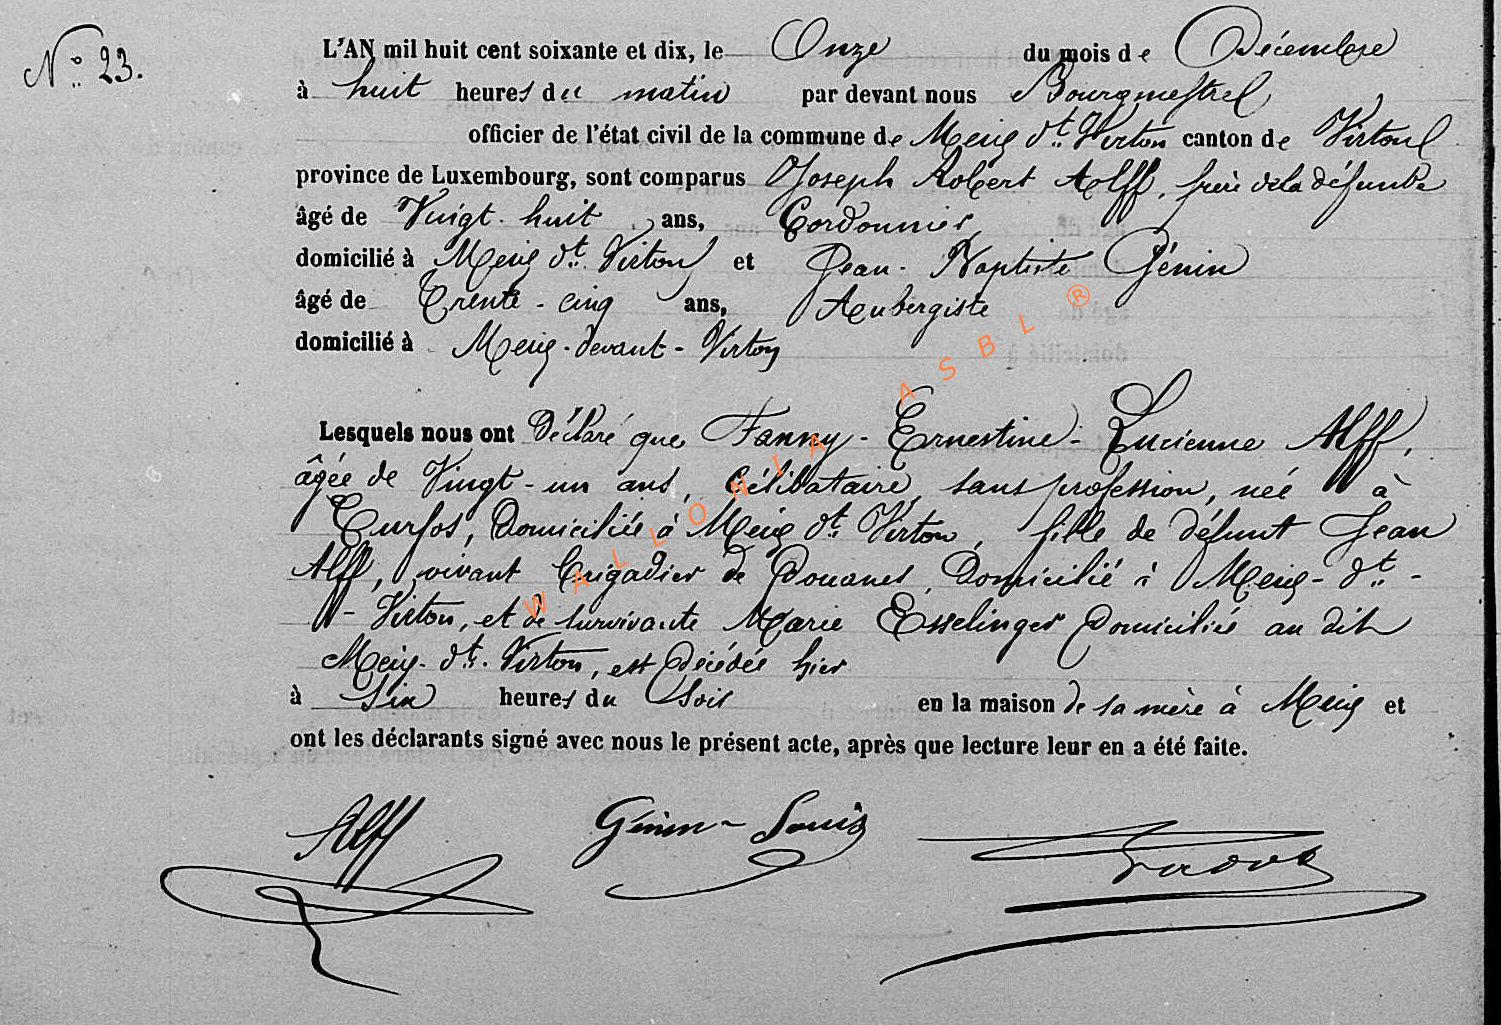 N° 23.
L'AN mil huit cent soixante et dix, le Onze du mois de Décembre
à huit heures du matin par devant nous Bourgmestre
officier de l'état civil de la commune de Meix dt Virton canton de Virton
province de Luxembourg, sont comparus Joseph Robert Alff, frère de la défunte
âgé de Vingt-huit ans, Cordonnier,
domicilié à Meix dt Virton et Jean-Baptiste Génin
âgé de Trente-cinq ans, Aubergiste
domicilié à Meix-devant-Virton
Lesquels nous ont Déclaré que Fanny-Ernestine-Lucienne Alff,
âgée de Vingt-un ans, célibataire, sans profession, née à
Domiciliée à Meix dt Virton, fille de défunt Jean
Alff, vivant brigadier de Douanes Domicilié à Meix-dt-
-Virton, et de survivante Marie Esselinger Domiciliée au dit
Meix-dt-Virton, est Décédée hier
à Six heures du Soir en la maison de sa mère à Meix et
ont les déclarants signé avec nous le présent acte, après que lecture leur en a été faite.
Alff Génin-Louis
WALLONIA ASBL ®